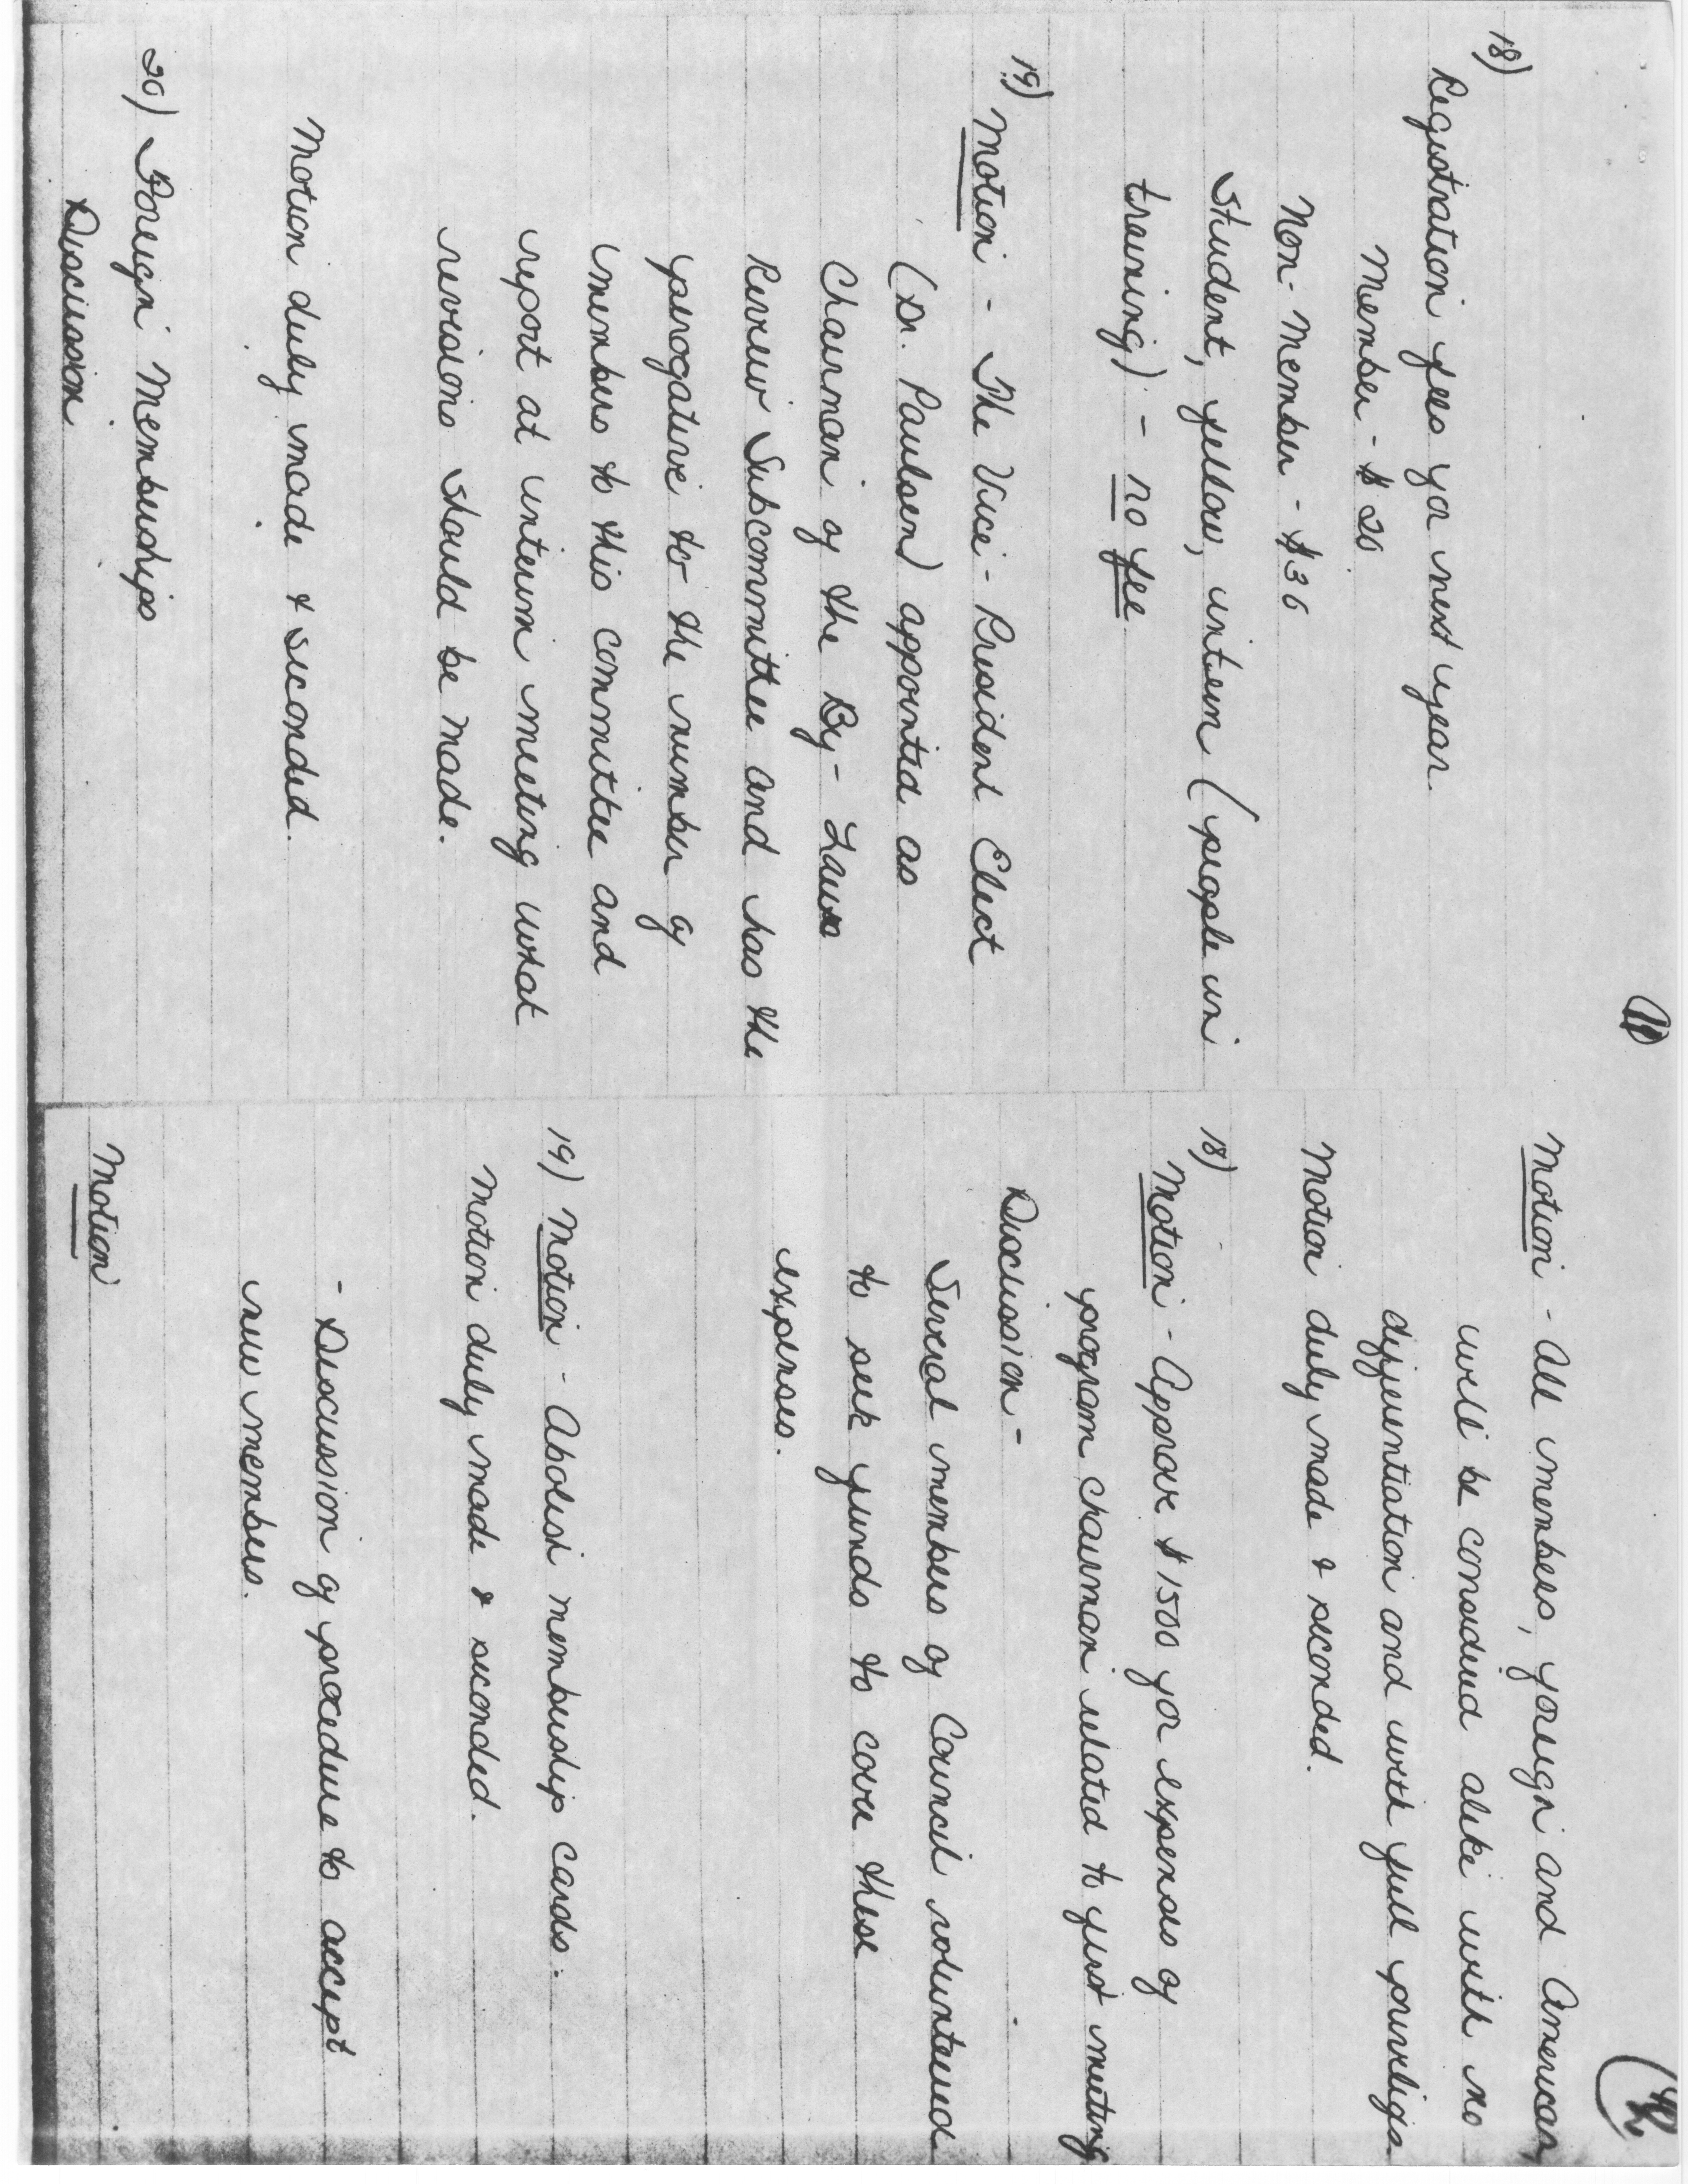 11
18)
Registration fees for next year
Member - $20
Non-Member - $30
Student, fellow, intern (people in
training) - no fee
19) Motion - The Vice-President Elect
(Dr. Paulsen) appointed as
Chairman of the By-Laws
Review Subcommittee and has the
perogative to the number of
members to this committee and
report at interim meeting what
revisions should be made.
Motion duly made & seconded.
20) Foreign Memberships
Discussion
12
Motion - All members, foreign and American,
will be considered alike with no
differentiation and with full privileges
Motion duly made & seconded.
18)
Motion - Approve $1500 for expenses of
program chairman related to first meeting
Discussion -
Several members of Council volunteered
to seek funds to cover these
expenses.
19) Motion - Abolish membership cards.
Motion duly made & seconded.
- Discussion of procedure to accept
new members.
Motion